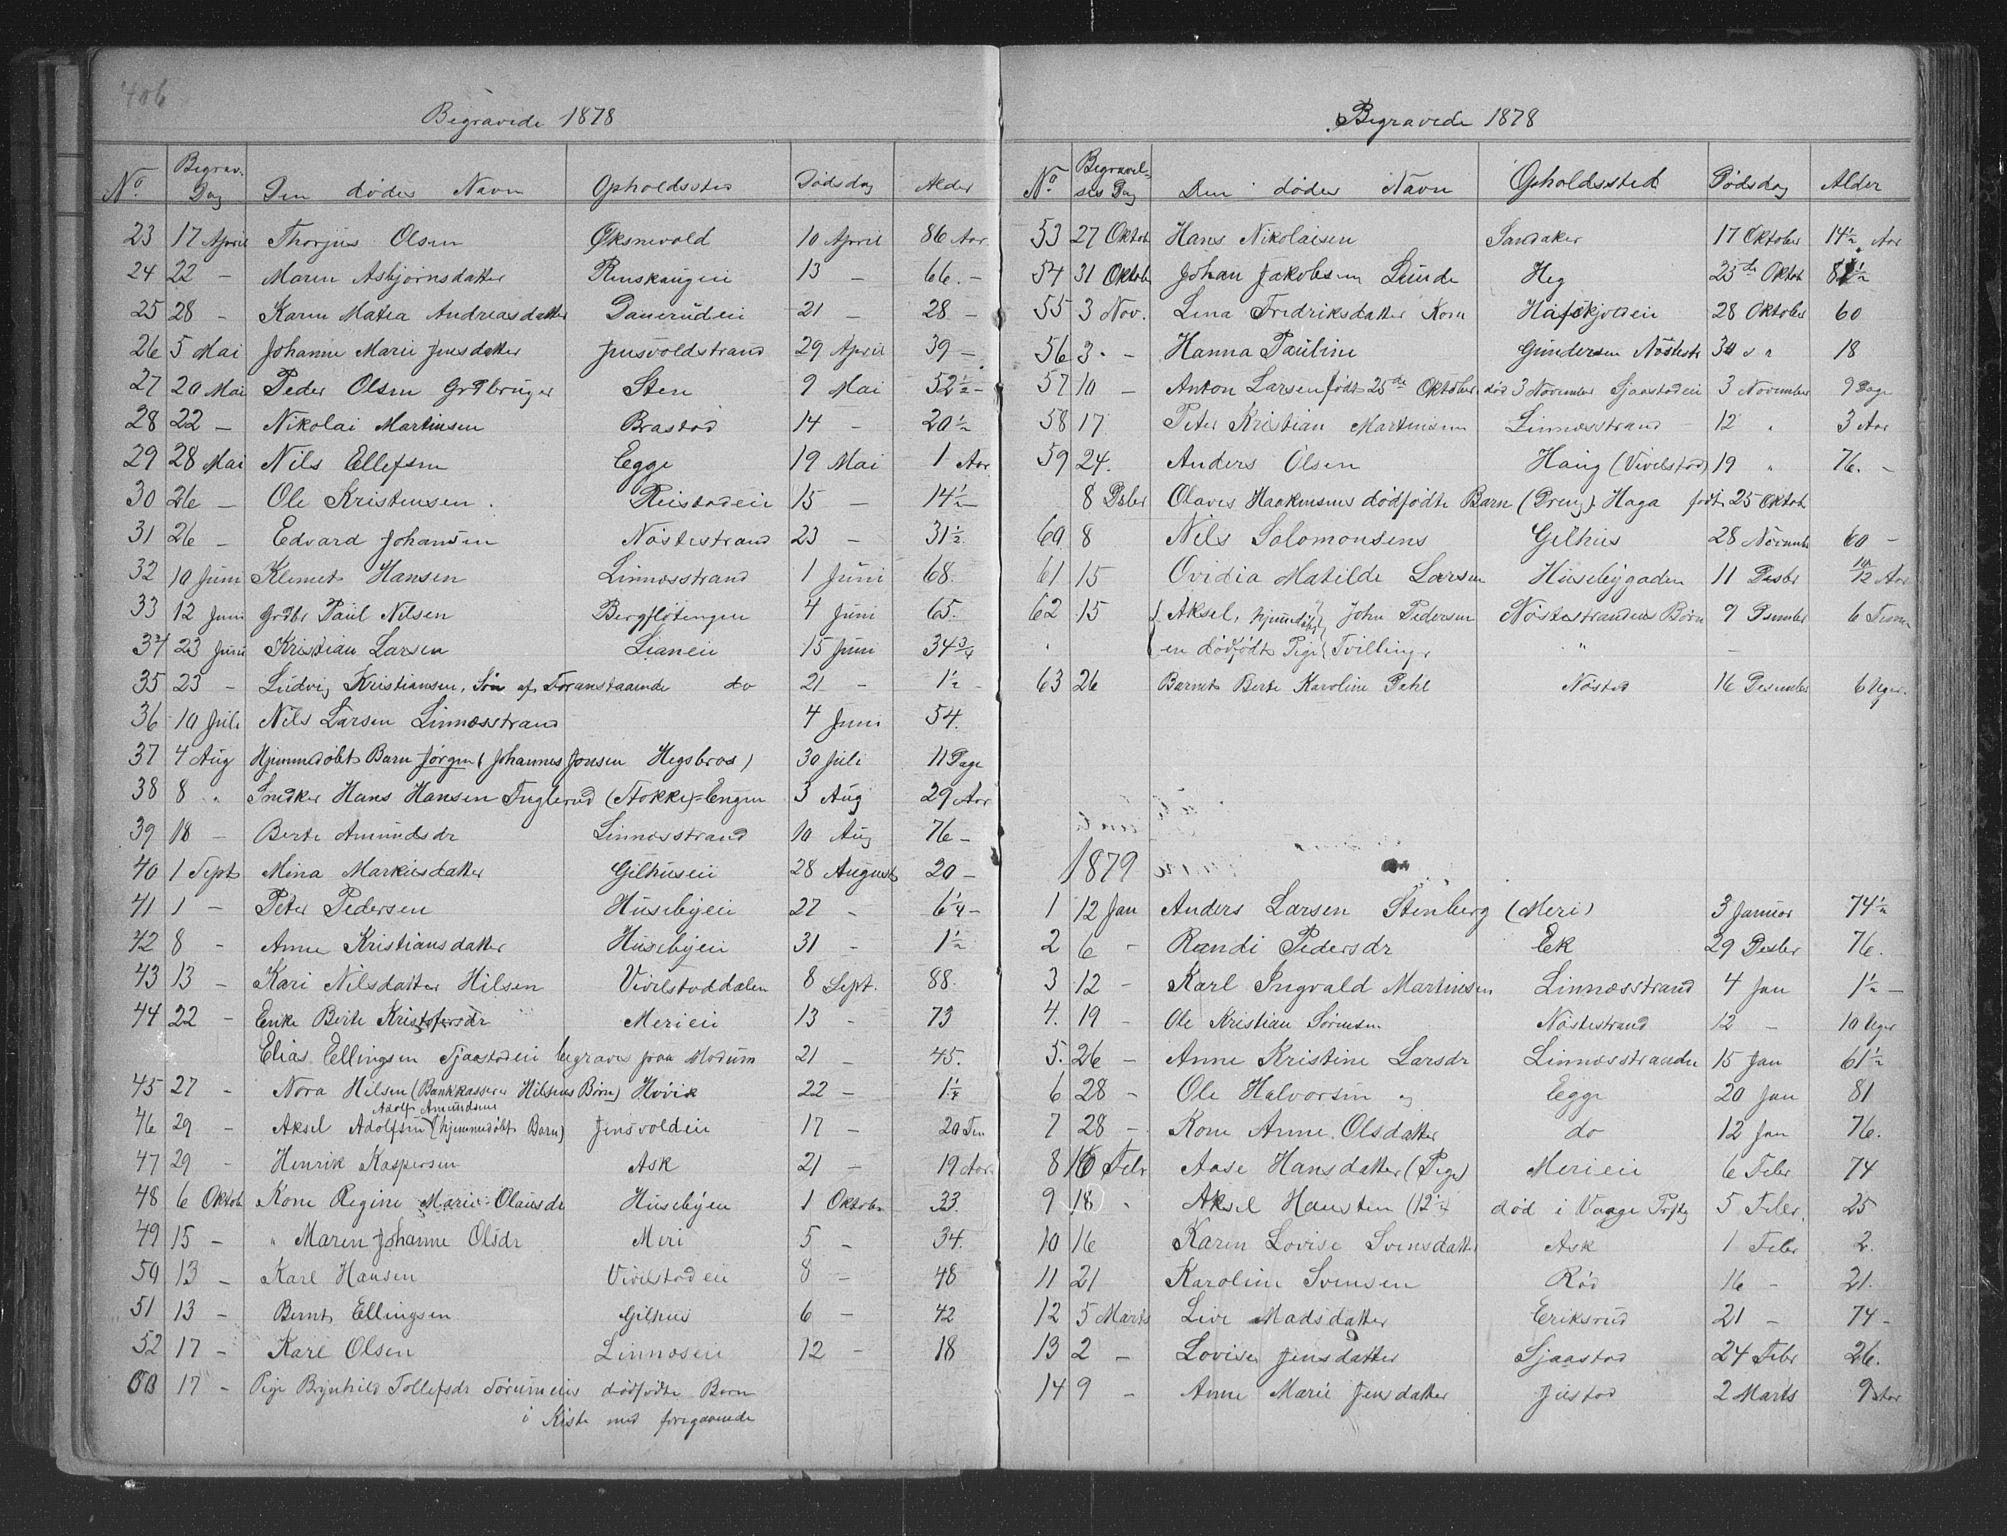 406
Begravede 1878
No Begrav. Dag Den dødes Navn Opholdssted Dødsdag Alder
23 17 April Thorjus Olsen Øksnevald 10 April 86 Aar
24 22 — Maren Asbjørnsdatter 13 — 66. —
25 28 — Karen Matea Andreasdatter Danerudeie 21 — 28 —
26 5 Mai Johanne Marie Jensdatter Jensvoldstrand 29 April 39 —
27 20 Mai Peder Olsen Grdbruger Sten 9 Mai 52½ —
28 22 — Nikolai Martinsen Brastad 14 — 20½
29 28 Mai Nils Ellefsen Egge 19 Mai 1 Aar
30 26 — Ole Kristensen Reistadeie 15 — 14½ —
31 26 — Edvard Johansen Nøstestrand 23 — 31½
32 10 Juni Klemet Hansen Linnesstrand 1 Juni 68.
33 12 Juni Grdbr Paul Nilsen Bergfløtengen 4 Juni 65.
34 23 Juni Kristian Larsen Lianeie 15 Juni 34¾
35 23 — Ludvig Kristiansen, Søn af Foranstaaende do 21 — 1½ —
36 10 Juli Nils Larsen Linnesstrand 4 Juni 54.
37 4 Aug Hjemmedøbt Barn Jørgen (Johannes Jonsen Hegsbros) 30 Juli 11 Dage
38 8 „ Snedker Hans Hansen Fuglerud (Stokke)=Engen 3 Aug 29 Aar
39 18 — Berte Amundsdr Linnesstrand 10 Aug 76 —
40 1 Sept Mina Markusdatter Gilhuseie 28 August 20 —
41 1 — Peter Pedersen Husebyeie 27 — 6¼ —
42 8 — Anne Kristiansdatter Husebyeie 31 — 1½
43 13 — Kari Nilsdatter Hilsen Vivelstaddalen 8 Sept. 88.
44 22 — Enke Berte Kristofersdr Merieie 13 — 73
Elias Ellingsen Sjaastadeie begraves paa Modum 21 — 45.
45 27 — Nora Hilsen (Bankkasserer Hilsens Børn) Høvik 22 — 1¼
Adolf Amundsens
46 29 — Aksel Adolfsen (hjemmedøbt Barn) Jensvoldeie 17 — 20 Tim
47 29 — Henrik Kaspersen Ask 21 — 19 Aar
48 6 Oktob Kone Regine Marie Olausdr Husebyeie 1 Oktober 33.
49 15 — „ Maren Johanne Olsdr Meri 5 — 34.
50 13 — Karl Hansen Vivelstadeie 8 — 48
51 13 — Bernt Ellingsen Gilhus 6 — 42
52 17 — Karl Olsen Linneseie 12 — 18
17 — Pige Brynhild Tollefsdr dødfødte Barn
i Kiste med foregaaende
Begravede 1878
No Begravelses Dag Den dødes Navn Opholdssted Dødsdag Alder
53 27 Oktob Hans Nikolaisen Sandaker 17 Oktober 14½ Aar
54 31 Oktob Johan Jakobsen Lunde Heg 25de Oktob
55 3 Nov. Lina Fredriksdatter Kone 28 Oktober 60
56 3 — Hanna Pauline Gundersen Nøstestr 30 „ 18
57 10 — Anton Larsen født 25de Oktober, død 3 November Sjaastadeie 3 November 9 Dage
58 17 Peter Kristian Martinsen Linnesstrand 12 „ 3 Aar
59 24. Anders Olsen Haug (Vivelstad) 19 „ 76. —
8 Dsbr Olaves Haakensens dødfødte Barn (Dreng) Haga født 25 Oktob
60 8 Nils Salomonsens Gilhus 28 Novembr 60 —
61 15 Ovidia Matilde Larsen Husebygaden 11 Desbr 10/12 Aar
62 15 { Aksel, hjemdøbt } John Pedersen Nøstestrandens Børn 9 Desember 6 Timer
„ { en dødfødt Pige } Tvillinger „ —
63 26 Barnet Berte Karoline Dahl Nøstad 16 Desember 6 Uger
1879
1 12 Jan Anders Larsen Stenberg (Meri) 3 Januar 74½
2 6 — Randi Pedersdr Ek 29 Desbr 76.
3 12 — Karl Ingvald Martinsen Linnesstrand 4 Jan 1½ —
4. 19 — Ole Kristian Sørensen Nøstestrand 12 — 10 Uger
5. 26 — Anne Kristine Larsdr Linnesstranden 15 Jan 61½
6 28 — Ole Halvorsen og Egge 20 Jan 81
7 28 — Kone Anne Olsdatter do 12 Jan 76.
8 16 Febr Aase Hansdatter (Pige) Merieie 6 Febr 74
9 18 „ Aksel Hansten død i Vaage Prstg 5 Febr. 25
10 16 Karen Lovise Svensdatter Ask 1 Febr 2.
11 21 Karoline Svensen Rød 16 — 21.
12 5 Marts Live Madsdatter Eriksrud 21 — 74 —
13 2 — Lovise Jensdatter Sjaastad 24 Febr 26.
14 9 — Anne Marie Jensdatter Justad 2 Marts 9 Aar